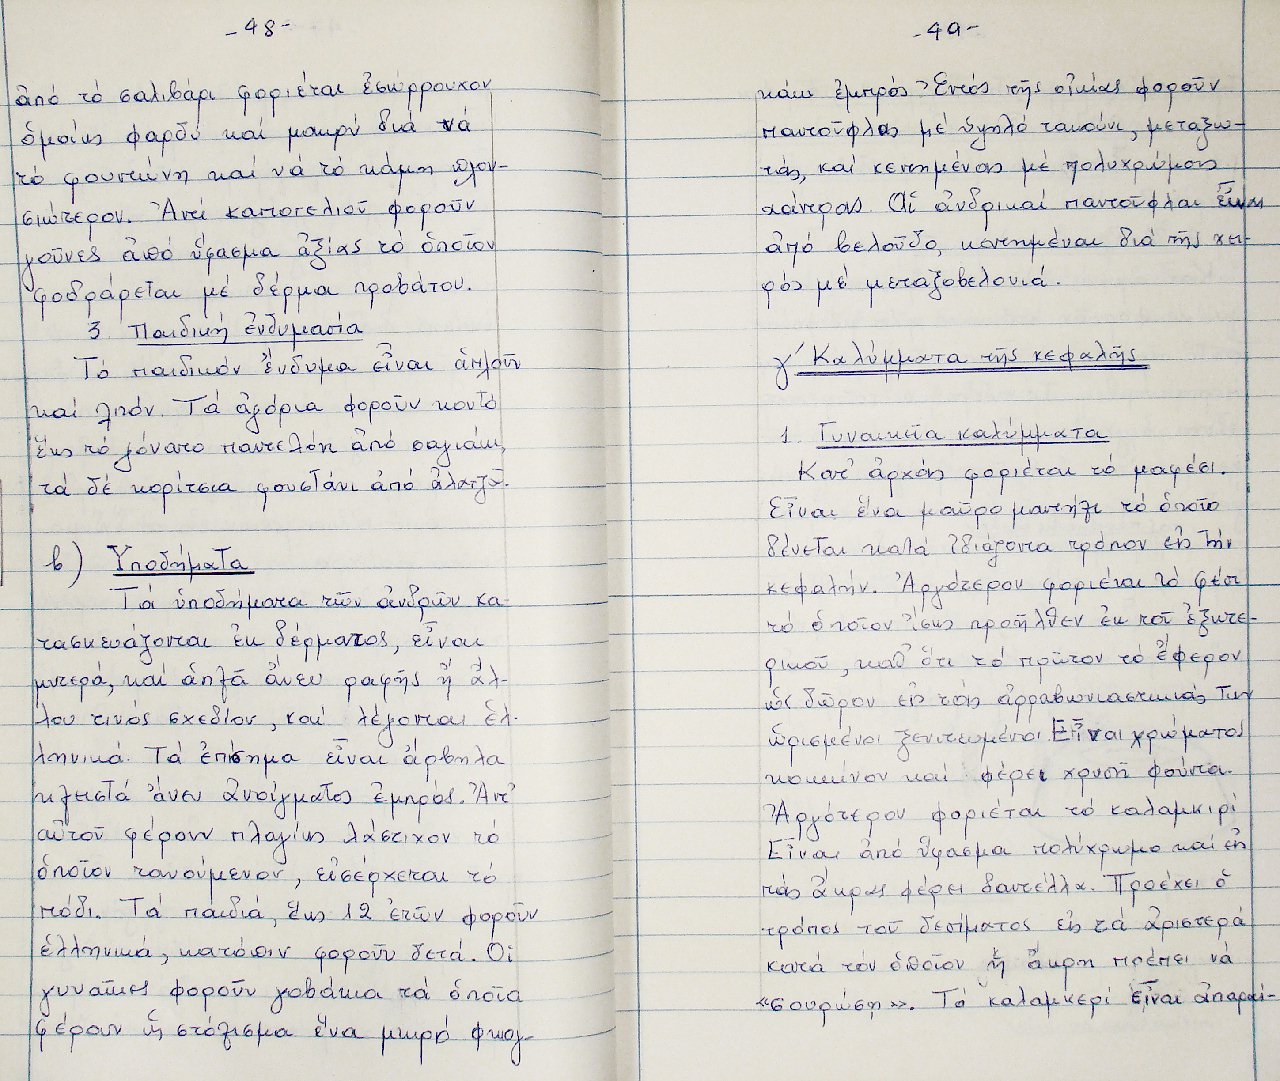 -48-
ἀπό τό σαλιβάρι φοριέται ἐσώρρουχον
ὁμοίως φαρδύ καί μακρύ διά νά
τό φουντώνη καί νά τό κάμη πλου-
σιώτερον. Ἀντί καποτελιοῦ φοροῦν
γοῦνες ἀπό ὕφασμα ἀξίας τό ὁποῖον
φοδράρεται μέ δέρμα προβάτου.
3 Παιδική ἐνδυμασία
Τό παιδικόν ἔνδυμα εἶναι ἁπλοῦν
καί λιτόν. Τά ἀγόρια φοροῦν κοντό
ἕως τό γόνατο παντελόνι ἀπό σαγιάκι,
τά δέ κορίτσια φουστάνι ἀπό ἀλατζᾶ.
β) Ὑποδήματα
Τά ὑποδήματα τῶν ἀνδρῶν κα-
τασκευάζονται ἐκ δέρματος, εἶναι
μυτερά, καί ἁπλᾶ ἄνευ ραφῆς ἤ ἄλ-
λου τινός σχεδίου, καί λέγονται ἑλ-
ληνικά. Τά ἐπίσημα εἶναι ἀρβηλα
κλειστά ἄνευ ἀνοίγματος ἐμπρός. Ἀντ'
αὐτοῦ φέρουν πλαγίως λάστιχον τό
ὁποῖον τανούμενον, εἰσέρχεται τό
πόδι. Τά παιδιά, ἕως 12 ἐτῶν φοροῦν
ἑλληνικά, κατόπιν φοροῦν δετά. Οἱ
γυναῖκες φοροῦν γοβάκια τά ὁποῖα
φέρουν ὡς στόλισμα ἕνα μικρό φιογ-
-49-
κάκι ἐμπρός Ἐντός τῆς οἰκίας φοροῦν
παντοῦφλας μέ ὑψηλό τακούνι, μεταξω-
τάς, καί κεντημένας μέ πολυχρώμους
χάντρας. Αἱ ἀνδρικαί παντοῦφλαι εἶναι
ἀπό βελοῦδο, κεντημέναι διά τῆς χει-
ρός μέ μεταξοβελονιά.
γ' Καλύμματα τῆς κεφαλῆς
1. Γυναικεῖα καλύμματα
Κατ' ἀρχάς φοριέται τό μαφέσι.
Εἶναι ἕνα μαῦρο μαντήλι τό ὁποῖο
δένεται κατά ἰδιάζοντα τρόπον εἰς τήν
κεφαλήν. Ἀργότερον φοριέται τό φέσι
τό ὁποῖον ἴσως προῆλθεν ἐκ τοῦ ἐξωτε-
ρικοῦ, καθ' ὅτι τό πρῶτον τό ἔφερον
ὡς δῶρον εἰς τάς ἀρραβωνιαστικιάς των
ὡρισμένοι ξενιτευμένοι. Εἶναι χρώματος
κοκκίνου καί φέρει χρυσῆ φούντα.
Ἀργότερον φοριέται τό καλαμκιρί
Εἶναι ἀπό ὕφασμα πολύχρωμο καί εἰς
τάς ἄκρας φέρει δαντέλλα. Προέχει ὁ
τρόπος τοῦ δεσίματος εἰς τά ἀριστερά
κατά τόν ὁποῖον ἡ ἄκρη πρέπει νά
«σουρώση». Τό καλαμκερί εἶναι ἀπαραί-